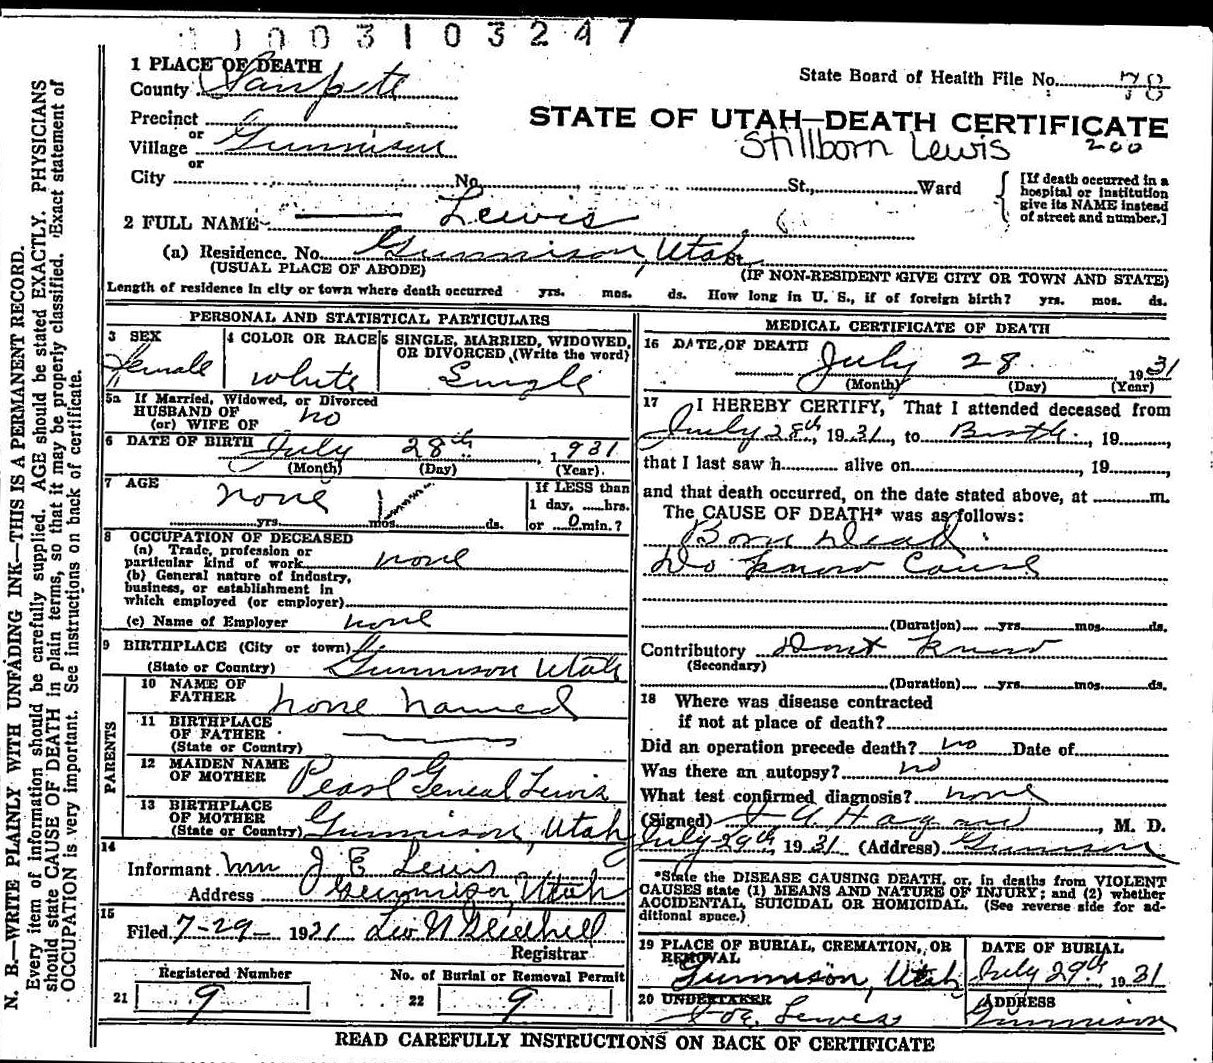 1003103247
1 PLACE OF DEATH
County Sanpete
State Board of Health File No. 78
Precinct
or
Village Gunnison
or
STATE OF UTAH—DEATH CERTIFICATE
Stillborn Lewis 200
City No. St., Ward
[If death occurred in a
hospital or institution
give its NAME instead
of street and number.]
2 FULL NAME Lewis
(a) Residence. No. Gunnison, Utah
(USUAL PLACE OF ABODE) (IF NON-RESIDENT GIVE CITY OR TOWN AND STATE)
Length of residence in city or town where death occurred yrs. mos. ds. How long in U. S., if of foreign birth? yrs. mos. ds.
PERSONAL AND STATISTICAL PARTICULARS
3 SEX
Female
4 COLOR OR RACE
White
5 SINGLE, MARRIED, WIDOWED,
OR DIVORCED (Write the word)
Single
5a If Married, Widowed, or Divorced
HUSBAND OF
(or) WIFE OF no
6 DATE OF BIRTH July 28th 1931
(Month) (Day) (Year)
7 AGE
none
yrs. mos. ds.
If LESS than
1 day, hrs.
or 0 min.?
8 OCCUPATION OF DECEASED
(a) Trade, profession or
particular kind of work none
(b) General nature of industry,
business, or establishment in
which employed (or employer)
(c) Name of Employer none
9 BIRTHPLACE (City or town)
(State or Country) Gunnison Utah
PARENTS
10 NAME OF
FATHER none named
11 BIRTHPLACE
OF FATHER
(State or Country)
12 MAIDEN NAME
OF MOTHER Pearl Geneal Lewis
13 BIRTHPLACE
OF MOTHER
(State or Country) Gunnison, Utah
14
Informant Wm J E Lewis
Address Gunnison, Utah
15
Filed 7-29- 1931
Registrar
Registered Number
21 9
No. of Burial or Removal Permit
22 9
MEDICAL CERTIFICATE OF DEATH
16 DATE OF DEATH July 28 1931
(Month) (Day) (Year)
17 I HEREBY CERTIFY, That I attended deceased from
July 28th, 1931, to Birth, 19
that I last saw h alive on , 19 ,
and that death occurred, on the date stated above, at m.
The CAUSE OF DEATH* was as follows:
Born Dead
Do know Cause
(Duration) yrs. mos. ds.
Contributory Dont know
(Secondary)
(Duration) yrs. mos. ds.
18 Where was disease contracted
if not at place of death?
Did an operation precede death? no Date of
Was there an autopsy? no
What test confirmed diagnosis? none
(Signed) , M. D.
July 29th, 1931 (Address) Gunnison
*State the DISEASE CAUSING DEATH, or, in deaths from VIOLENT
CAUSES state (1) MEANS AND NATURE OF INJURY; and (2) whether
ACCIDENTAL, SUICIDAL OR HOMICIDAL. (See reverse side for ad-
ditional space.)
19 PLACE OF BURIAL, CREMATION, OR
REMOVAL
Gunnison, Utah
DATE OF BURIAL
July 29th 1931
20 UNDERTAKER
Joe. Lewis
ADDRESS
Gunnison
READ CAREFULLY INSTRUCTIONS ON BACK OF CERTIFICATE
N. B.—WRITE PLAINLY WITH UNFADING INK—THIS IS A PERMANENT RECORD.
Every item of information should be carefully supplied. AGE should be stated EXACTLY. PHYSICIANS
should state CAUSE OF DEATH in plain terms, so that it may be properly classified. Exact statement of
OCCUPATION is very important. See instructions on back of certificate.